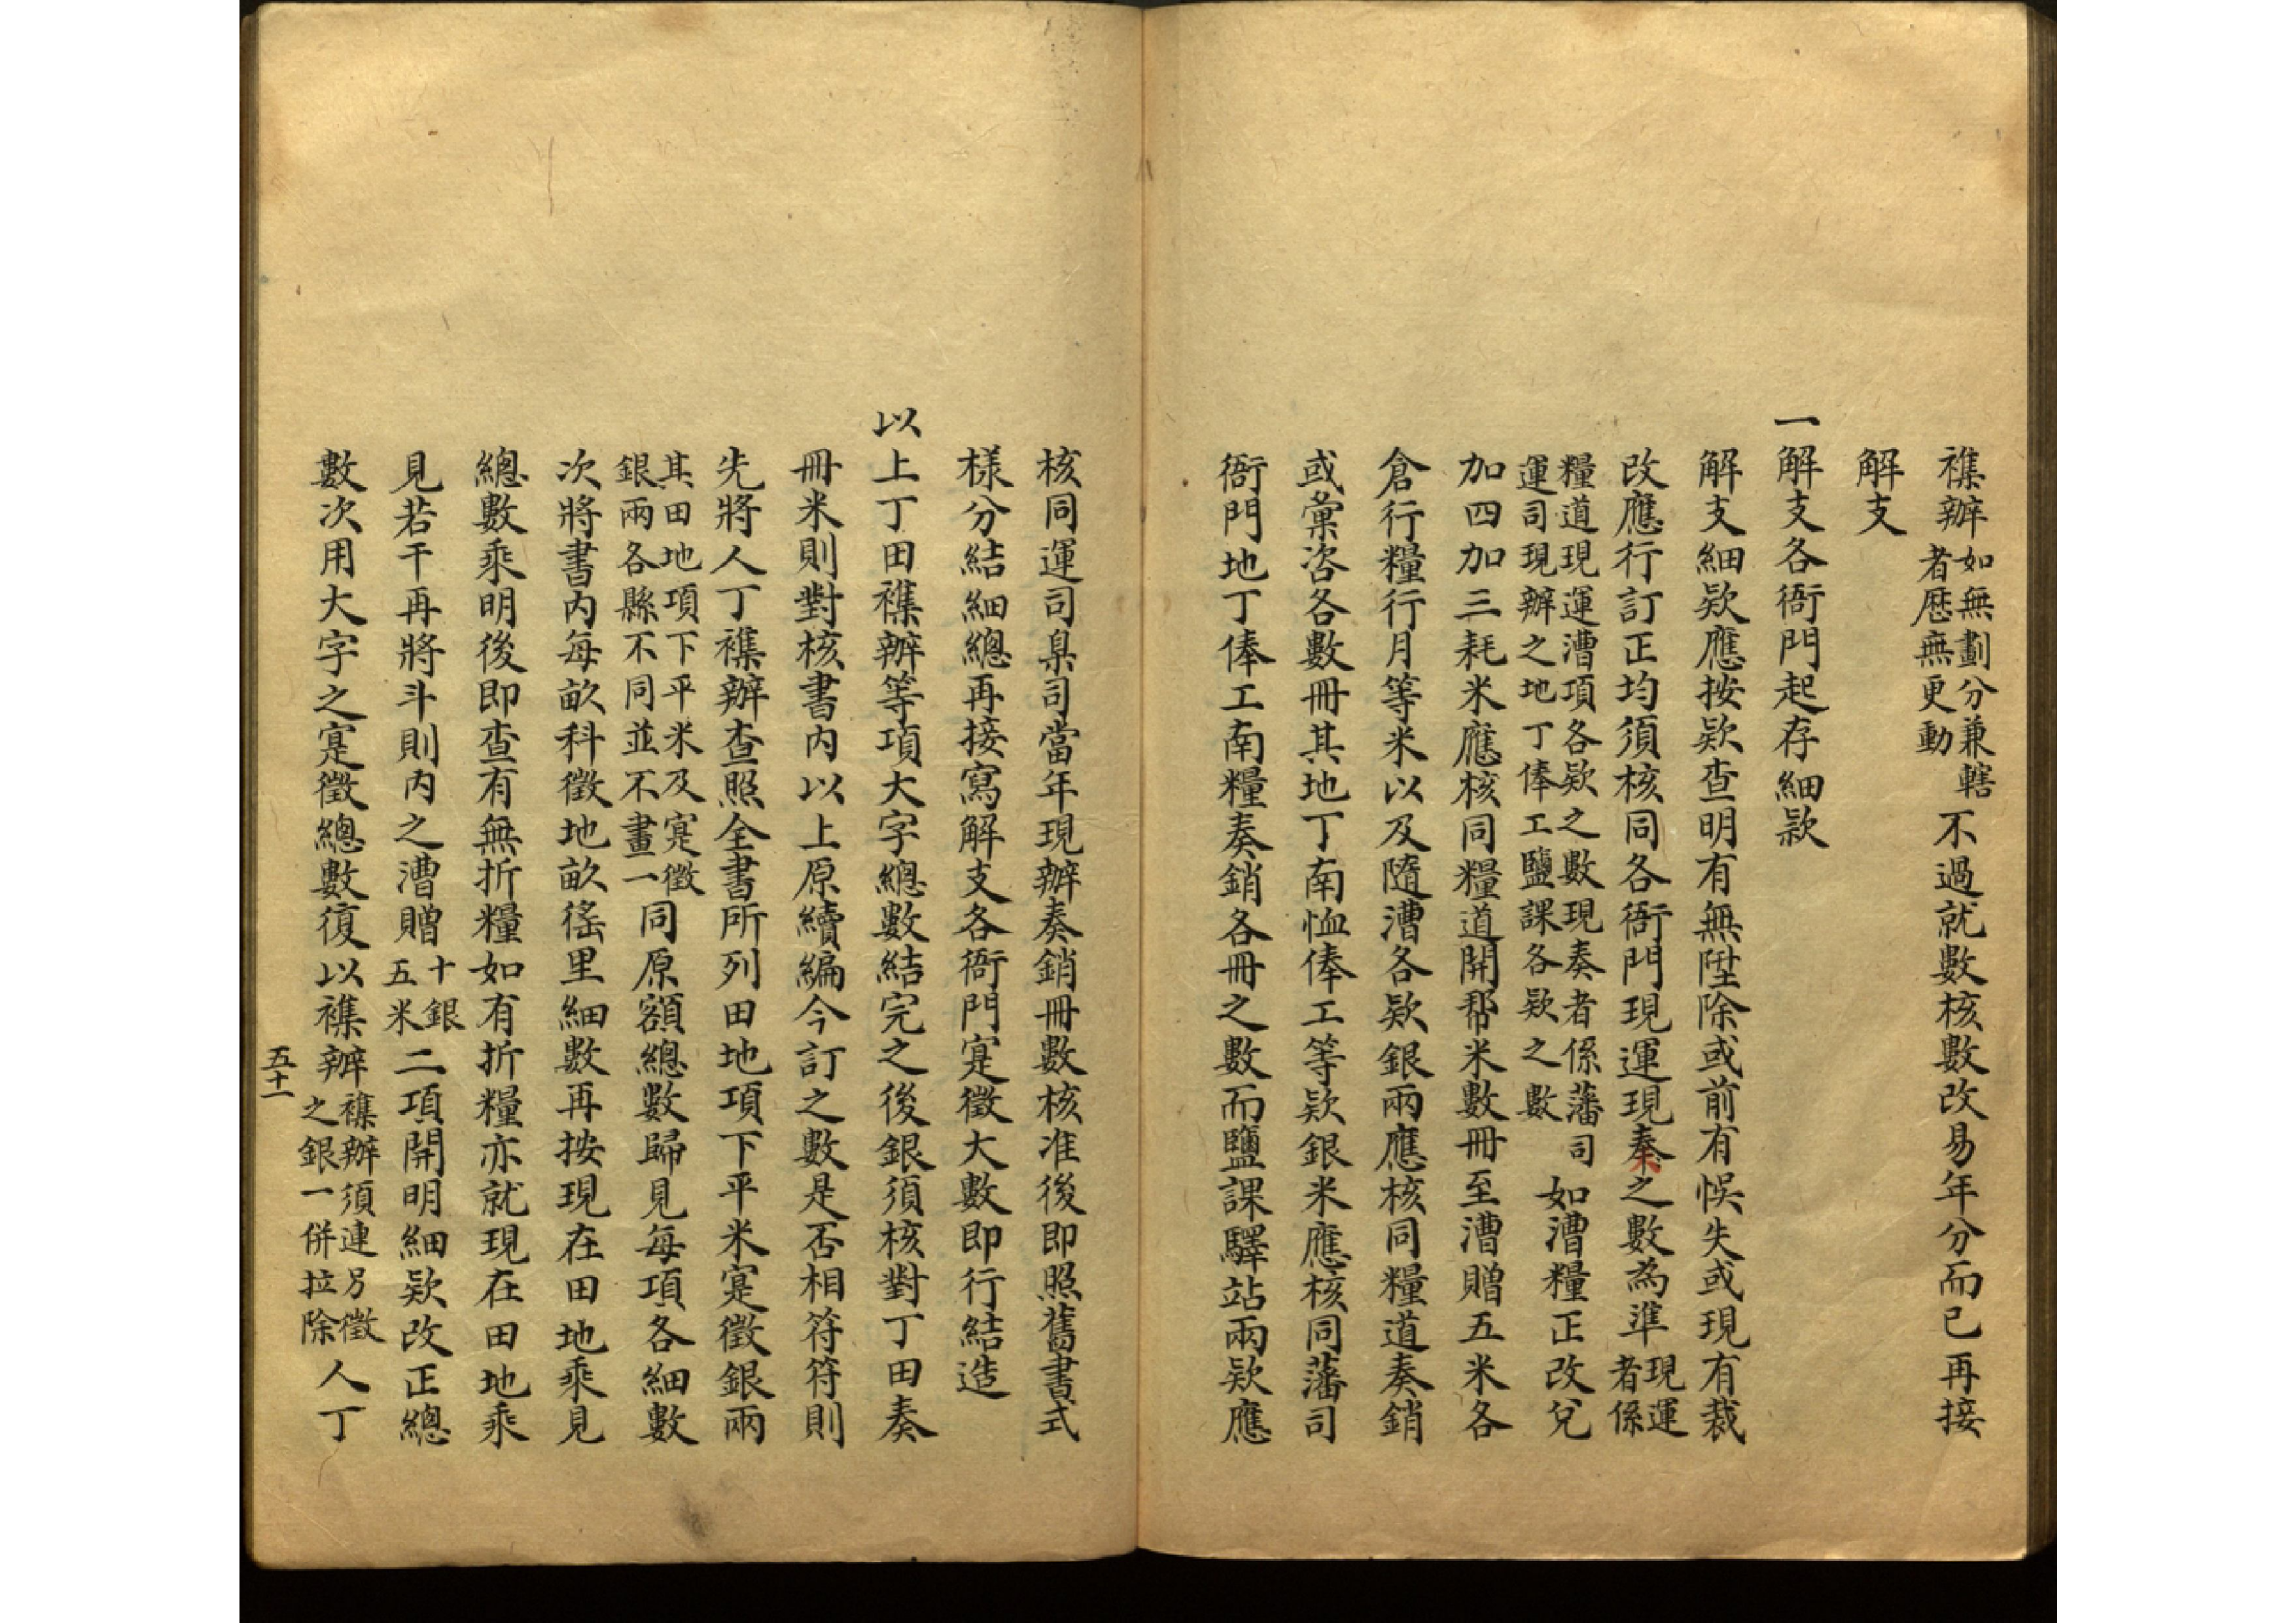 襍辦如無劃分兼轄者歷無更動不過就數核數改易年分而已再接
解支
一解支各衙門起存細款
解支細欵應按欵查明有無陞除或前有悞失或現有裁
改應行訂正均須核同各衙門現運現奏之數為準現運者係
糧道現運漕項各欵之數現奏者係藩司運司現辦之地丁俸工鹽課各欵之數如漕糧正改兌
加四加三耗米應核同糧道開帮米數冊至漕贈五米各
倉行糧行月等米以及隨漕各欵銀兩應核同糧道奏銷
或彙咨各數冊其地丁南恤俸工等欵銀米應核同藩司
衙門地丁俸工南糧奏銷各冊之數而鹽課驛站兩欵應
核同運司臬司當年現辦奏銷冊數核准後即照舊書式
樣分結細總再接寫解支各衙門寔徵大數即行結造
以上丁田襍辦等項大字總數結完之後銀須核對丁田奏
冊米則對核書內以上原續編今訂之數是否相符符則
先將人丁襍辦查照全書所列田地項下平米寔徵銀兩
其田地項下平米及寔徵銀兩各縣不同並不畫一同原額總數歸見每項各細數
次將書內每畝科徵地畝徭里細數再按現在田地乘見
總數乘明後即查有無折糧如有折糧亦就現在田地乘
見若干再將斗則內之漕贈十銀五米二項開明細欵改正總
數次用大字之寔徵總數復以襍辦襍辦須連另徵之銀一併拉除人丁
五十一